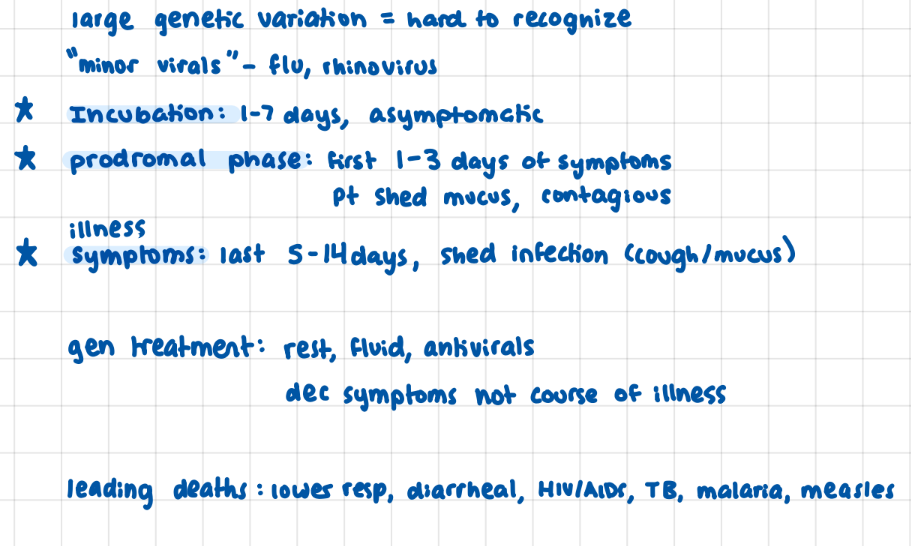 large genetic variation = hard to recognize
"minor virals" - flu, rhinovirus
★ Incubation: 1-7 days, asymptomatic
★ prodromal phase: first 1-3 days of symptoms
pt shed mucus, contagious
illness
★ symptoms: last 5-14 days, shed infection (cough/mucus)
gen treatment: rest, fluid, antivirals
dec symptoms not course of illness
leading deaths: lower resp, diarrheal, HIV/AIDs, TB, malaria, measles